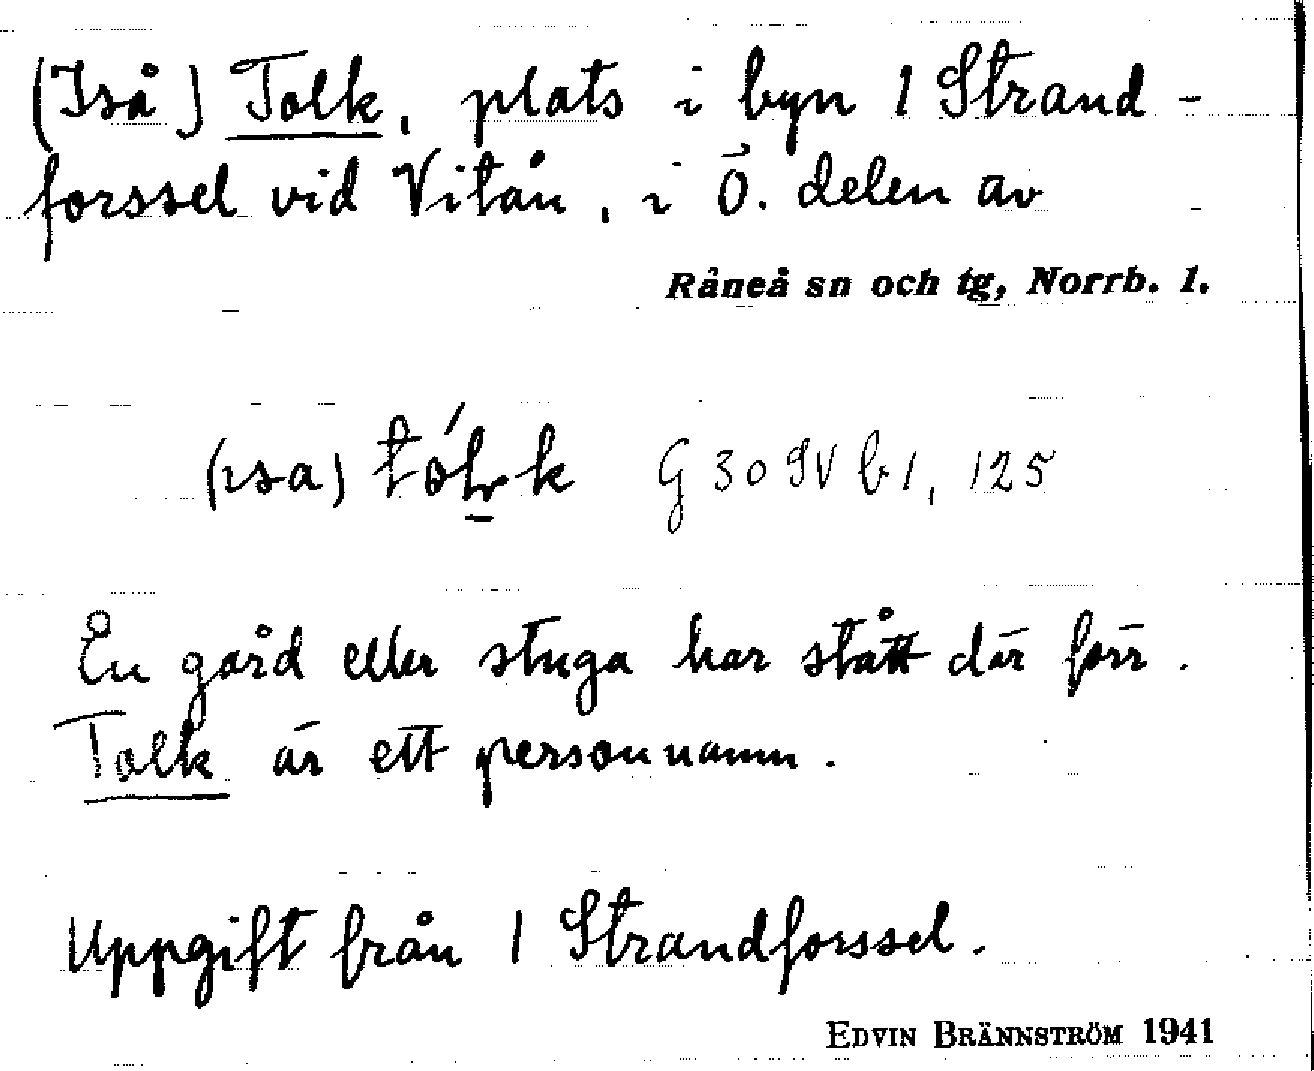 (Iså) Tolk, plats i byn 1 Strand-
forssel vid Vitån, i Ö. delen av
Råneå sn och tg, Norrb. l.
(ısa) tólk G 309V b1, 125
En gård eller stuga har stått där förr.
Tolk är ett personnamn.
Uppgift från 1 Strandforssel.
EDVIN BRÄNNSTRÖM 1941